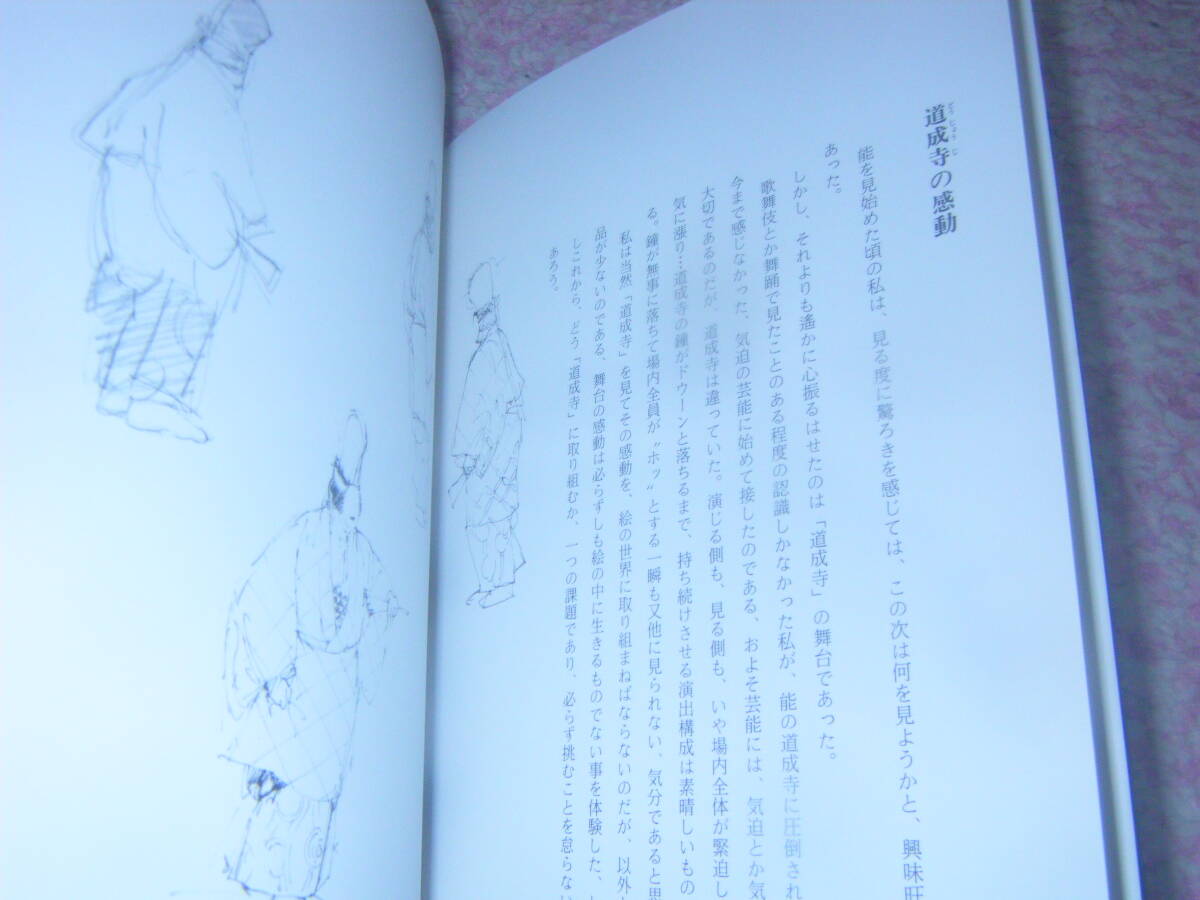 道成寺の感動
どう じょう じ
能を見始めた頃の私は、見る度に驚ろきを感じては、この次は何を見ようかと、興味旺
あった。
しかし、それよりも遙かに心振るはせたのは「道成寺」の舞台であった。
歌舞伎とか舞踊で見たことのある程度の認識しかなかった私が、能の道成寺に圧倒され
今まで感じなかった、気迫の芸能に始めて接したのである、およそ芸能には、気迫とか気
大切であるのだが、道成寺は違っていた。演じる側も、見る側も、いや場内全体が緊迫し
気に漲り…道成寺の鐘がドゥーンと落ちるまで、持ち続けさせる演出構成は素晴しいもの
る。鐘が無事に落ちて場内全員が〝ホッ〟とする一瞬も又他に見られない、気分であると思
私は当然「道成寺」を見てその感動を、絵の世界に取り組まねばならないのだが、以外
品が少ないのである、舞台の感動は必らずしも絵の中に生きるものでない事を体験した、
しこれから、どう「道成寺」に取り組むか、一つの課題であり、必らず挑むことを怠らない
あろう。